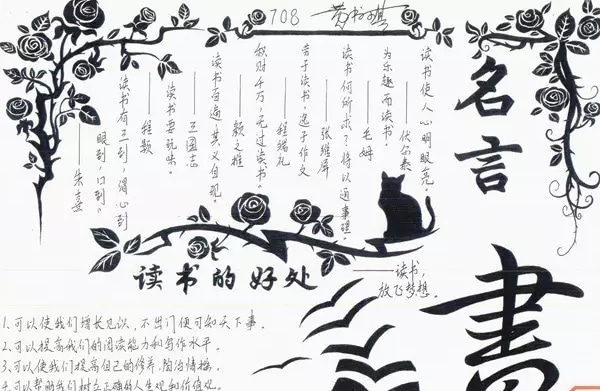 708
名言
读书使人心明眼亮。
——伏尔泰
为乐趣而读书。
——毛姆
读书何所求？将以通事理。
——张维屏
苦于读书，逸于作文
——程端礼
积财千万，无过读书。
——颜之推
读书百遍，其义自现。
——三国志
读书要玩味。
——程颢
读书有三到，谓心到
眼到，口到。
——朱熹
——读书，
放飞梦想。
读书的好处
1.可以使我们增长见识，不出门便可知天下事。
2.可以提高我们的阅读能力和写作水平。
3.可以使我们提高自己的修养，陶冶情操。
4.可以帮助我们树立正确的人生观和价值观。
書